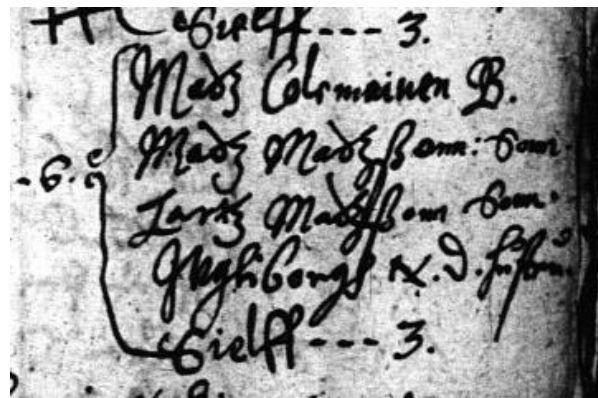 Sielff --- 3.
Madz Colemainen B.
Madz Madzsonn: Sonn
Lartz Madzsonn Sonn
Ingliborgh x. d.
- 6.
Sielff --- 3.